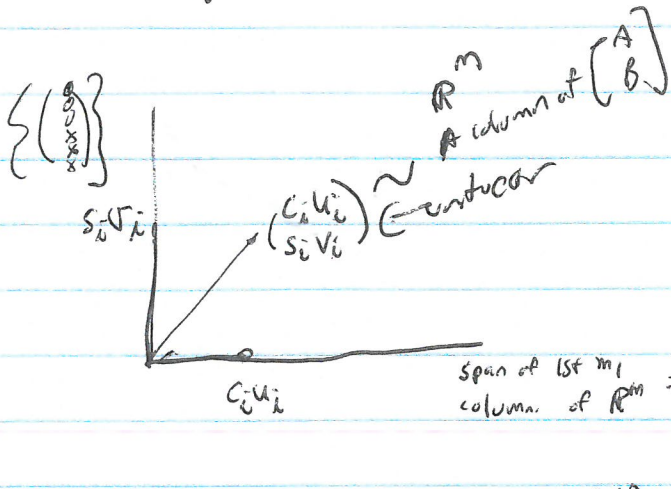 ℝᵐ
A column of [A
B]
{(0
0
0
x
x
x)}
sᵢvᵢ
(cᵢuᵢ
sᵢvᵢ) ~ ← unit vector
cᵢuᵢ
span of 1st m₁
column. of ℝᵐ =